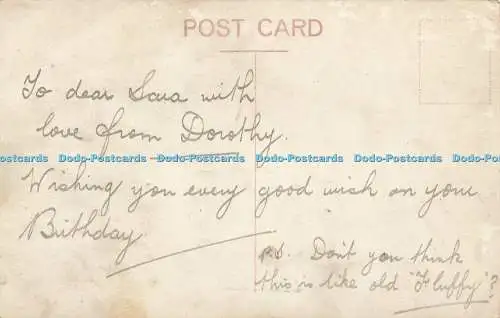 POST CARD
To dear Sara with
love from Dorothy.
Dodo-Postcards Dodo-Postcards Dodo-Postcards Dodo-Postcards Dodo-Postcards Dodo-Postcards
Wishing you every good wish on your
Birthday
P.S. Don't you think
this is like old "Fluffy"?